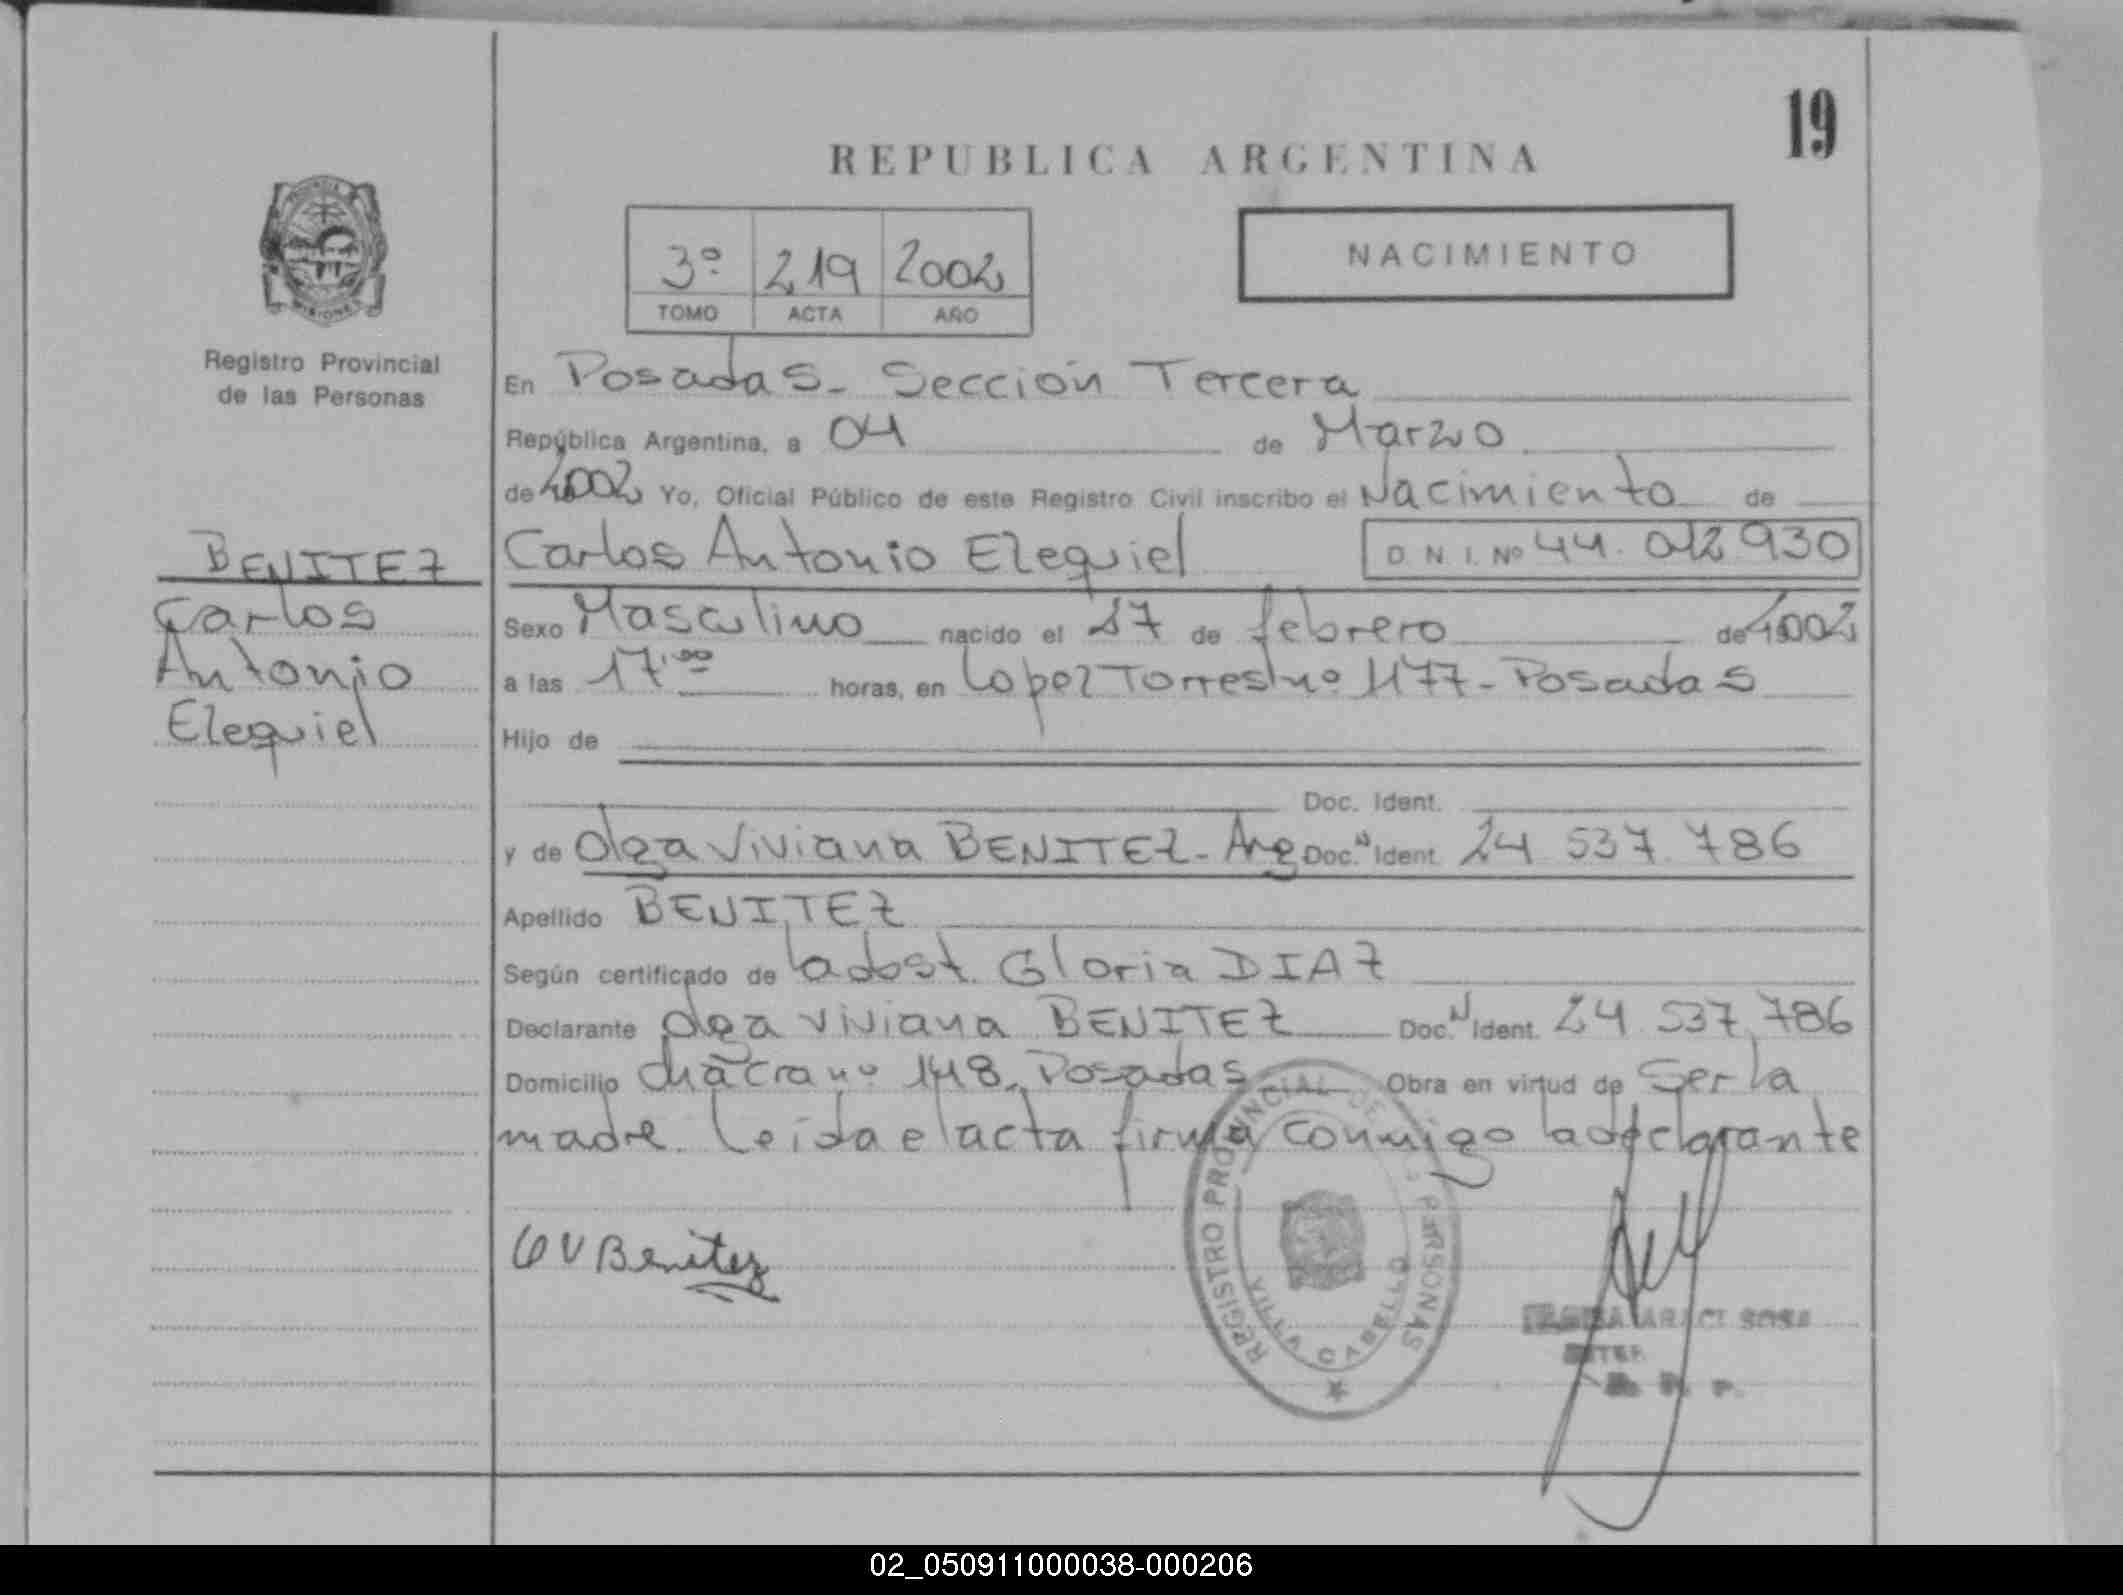 19
REPUBLICA ARGENTINA
3º 219 2002
TOMO ACTA AÑO
NACIMIENTO
Registro Provincial
de las Personas
En Posadas - Sección Tercera
República Argentina, a 04 de Marzo
de 2002 Yo, Oficial Público de este Registro Civil inscribo el Nacimiento de
BENITEZ
Carlos
Antonio
Ezequiel
Carlos Antonio Ezequiel D.N.I. Nº 44.012.930
Sexo Masculino nacido el 27 de febrero de 2002
a las 17,00 horas, en Lopez Torres nº 1177 - Posadas
Hijo de
Doc. Ident.
y de Olga Viviana BENITEZ - Arg Doc. N Ident. 24 537 786
Apellido BENITEZ
Según certificado de la obst. Gloria DIAZ
Declarante Olga Viviana BENITEZ Doc. N Ident. 24 537 786
Domicilio chacra nº 148, Posadas Obra en virtud de Ser la
madre. Leída el acta firma conmigo la declarante
OV Benitez
REGISTRO PROVINCIAL DE LAS PERSONAS
VILLA CABELLO
ARACI SOSA
R. P. P.
02_050911000038-000206